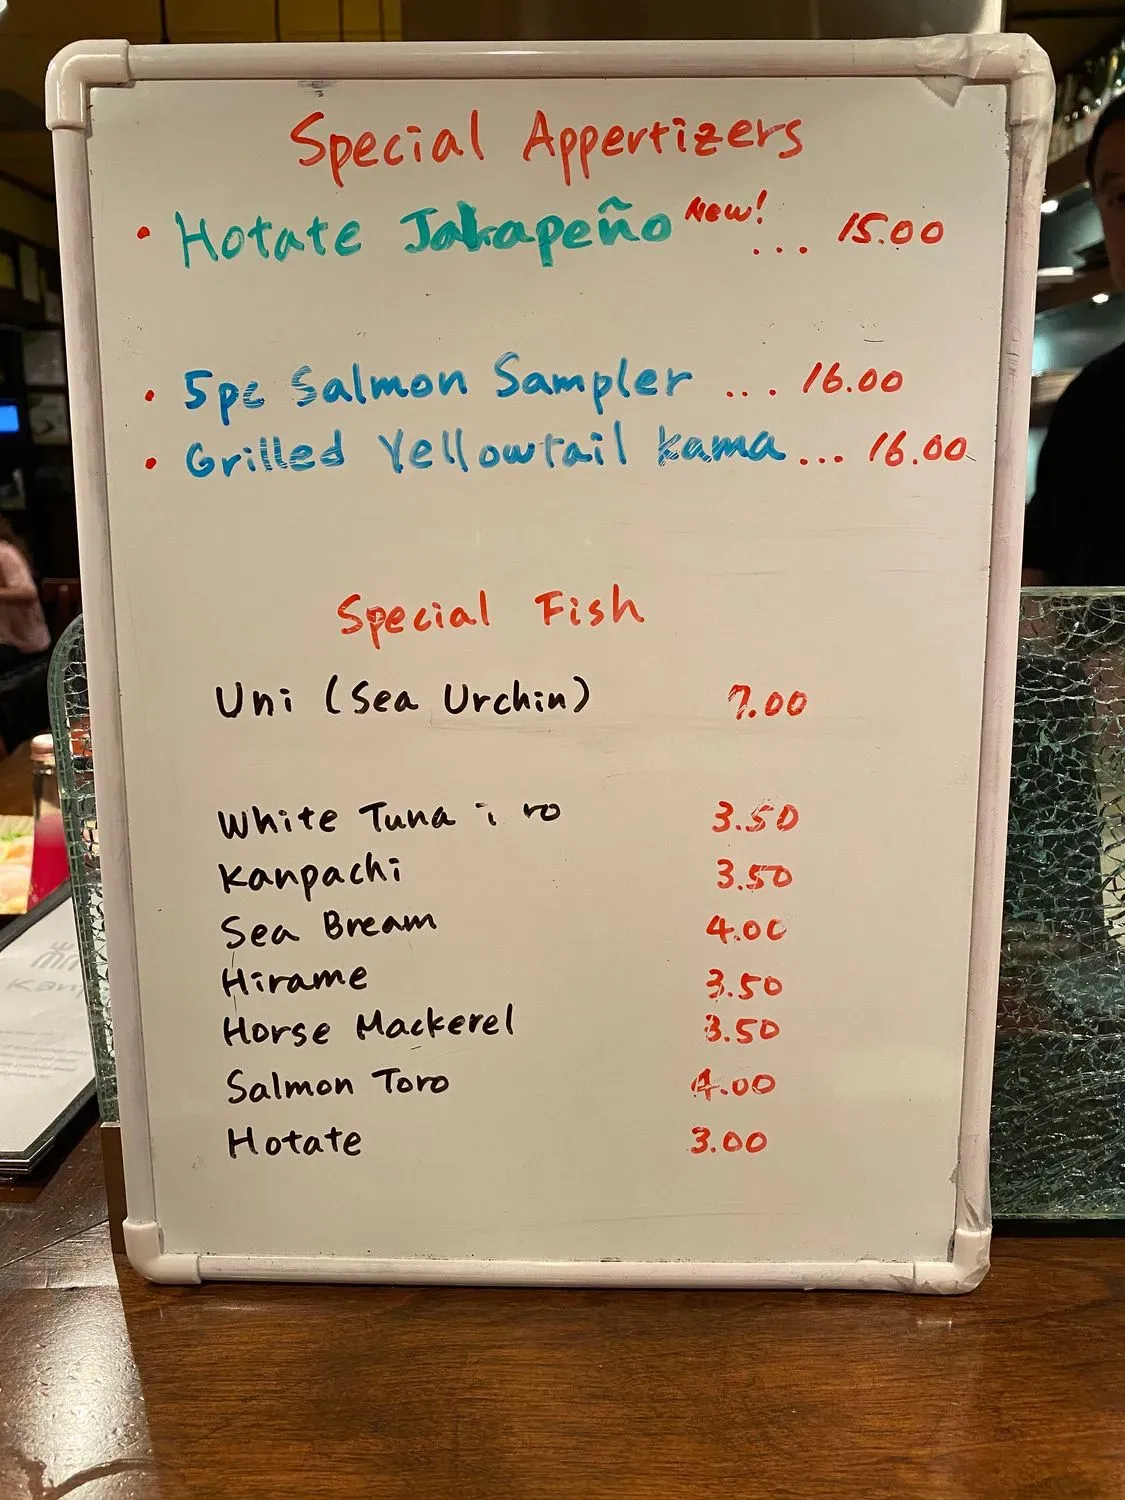 Special Appertizers
• Hotate Jalapeño New! ... 15.00
• 5pc Salmon Sampler ... 16.00
• Grilled Yellowtail Kama ... 16.00
Special Fish
Uni (Sea Urchin) 7.00
White Tuna 3.50
Kanpachi 3.50
Sea Bream 4.00
Hirame 3.50
Horse Mackerel 3.50
Salmon Toro 4.00
Hotate 3.00